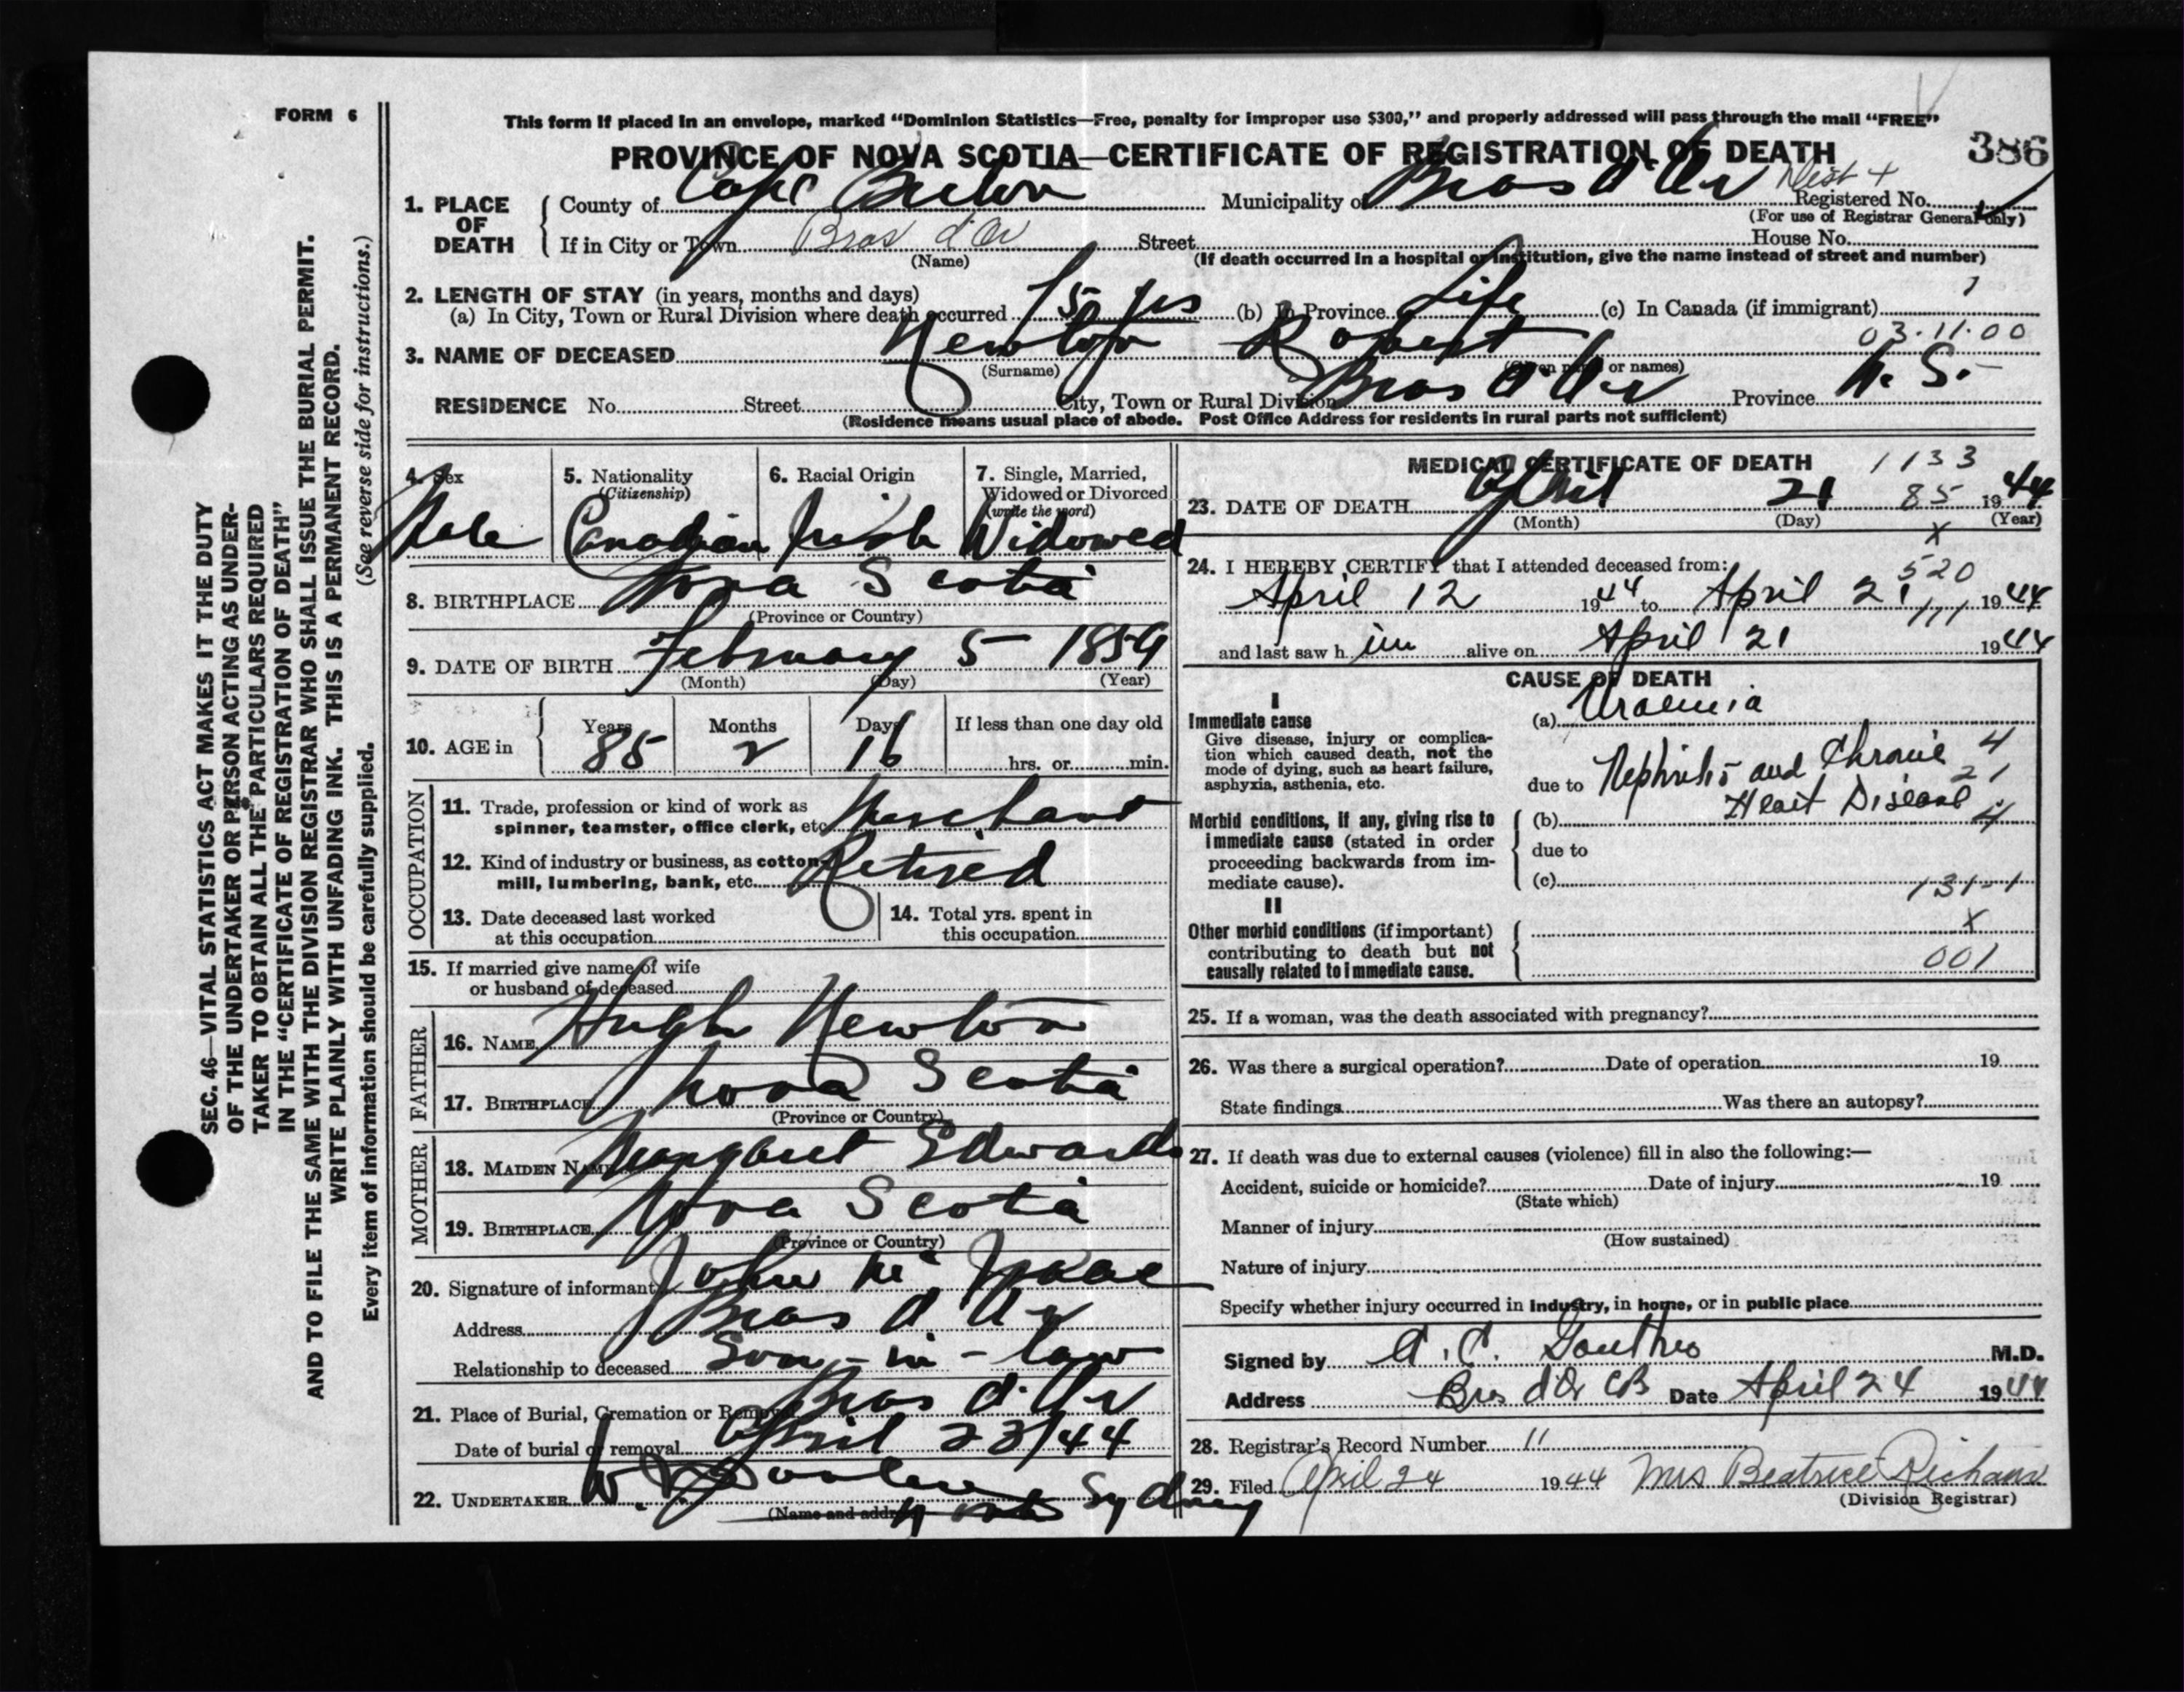 FORM 6
This form if placed in an envelope, marked “Dominion Statistics—Free, penalty for improper use $300,” and properly addressed will pass through the mail “FREE”
PROVINCE OF NOVA SCOTIA—CERTIFICATE OF REGISTRATION OF DEATH 386
1. PLACE OF DEATH
County of Cape Breton Municipality of Bras d'Or Dist 4 Registered No.
(For use of Registrar General only)
If in City or Town Bras d'Or Street House No.
(Name) (If death occurred in a hospital or institution, give the name instead of street and number)
2. LENGTH OF STAY (in years, months and days)
(a) In City, Town or Rural Division where death occurred 75 yrs (b) In Province Life (c) In Canada (if immigrant)
03.11.00
3. NAME OF DECEASED Newton Robert
(Surname) (Given name or names)
RESIDENCE No. Street City, Town or Rural Division Bras d'Or Province N. S.
(Residence means usual place of abode. Post Office Address for residents in rural parts not sufficient)
4. Sex Male
5. Nationality (Citizenship) Canadian
6. Racial Origin Irish
7. Single, Married, Widowed or Divorced (write the word) Widowed
8. BIRTHPLACE Nova Scotia
(Province or Country)
9. DATE OF BIRTH February 5 1859
(Month) (Day) (Year)
10. AGE in Years 85 Months 2 Days 16 If less than one day old
hrs. or min.
OCCUPATION
11. Trade, profession or kind of work as spinner, teamster, office clerk, etc. Merchant
12. Kind of industry or business, as cotton-mill, lumbering, bank, etc. Retired
13. Date deceased last worked at this occupation
14. Total yrs. spent in this occupation
15. If married give name of wife or husband of deceased
FATHER
16. NAME Hugh Newton
17. BIRTHPLACE Nova Scotia
(Province or Country)
MOTHER
18. MAIDEN NAME Margaret Edwards
19. BIRTHPLACE Nova Scotia
(Province or Country)
20. Signature of informant John Mc Isaac
Address Bras d'Or
Relationship to deceased Son-in-law
21. Place of Burial, Cremation or Removal Bras d'Or
Date of burial or removal April 23/44
22. UNDERTAKER North Sydney
(Name and address)
MEDICAL CERTIFICATE OF DEATH 1133
23. DATE OF DEATH April 21 85 1944
(Month) (Day) (Year)
X
24. I HEREBY CERTIFY that I attended deceased from:
520
April 12 1944 to April 21 1944
111
and last saw him alive on April 21 1944
CAUSE OF DEATH
I
Immediate cause
Give disease, injury or complication which caused death, not the mode of dying, such as heart failure, asphyxia, asthenia, etc.
(a) Uraemia
due to Nephritis and Chronic 4
21
Heart Disease 4
Morbid conditions, if any, giving rise to immediate cause (stated in order proceeding backwards from immediate cause).
(b)
due to
(c) 131-1
II
Other morbid conditions (if important) contributing to death but not causally related to immediate cause.
X
001
25. If a woman, was the death associated with pregnancy?
26. Was there a surgical operation? Date of operation 19
State findings Was there an autopsy?
27. If death was due to external causes (violence) fill in also the following:—
Accident, suicide or homicide? Date of injury 19
(State which)
Manner of injury
(How sustained)
Nature of injury
Specify whether injury occurred in Industry, in home, or in public place
Signed by A. C. Gouthro M.D.
Address Bras d'Or CB Date April 24 1944
28. Registrar's Record Number 11
29. Filed April 24 1944 Mrs Beatrice
(Division Registrar)
SEC. 46—VITAL STATISTICS ACT MAKES IT THE DUTY
OF THE UNDERTAKER OR PERSON ACTING AS UNDER-
TAKER TO OBTAIN ALL THE PARTICULARS REQUIRED
IN THE “CERTIFICATE OF REGISTRATION OF DEATH”
AND TO FILE THE SAME WITH THE DIVISION REGISTRAR WHO SHALL ISSUE THE BURIAL PERMIT.
WRITE PLAINLY WITH UNFADING INK. THIS IS A PERMANENT RECORD.
(See reverse side for instructions.)
Every item of information should be carefully supplied.